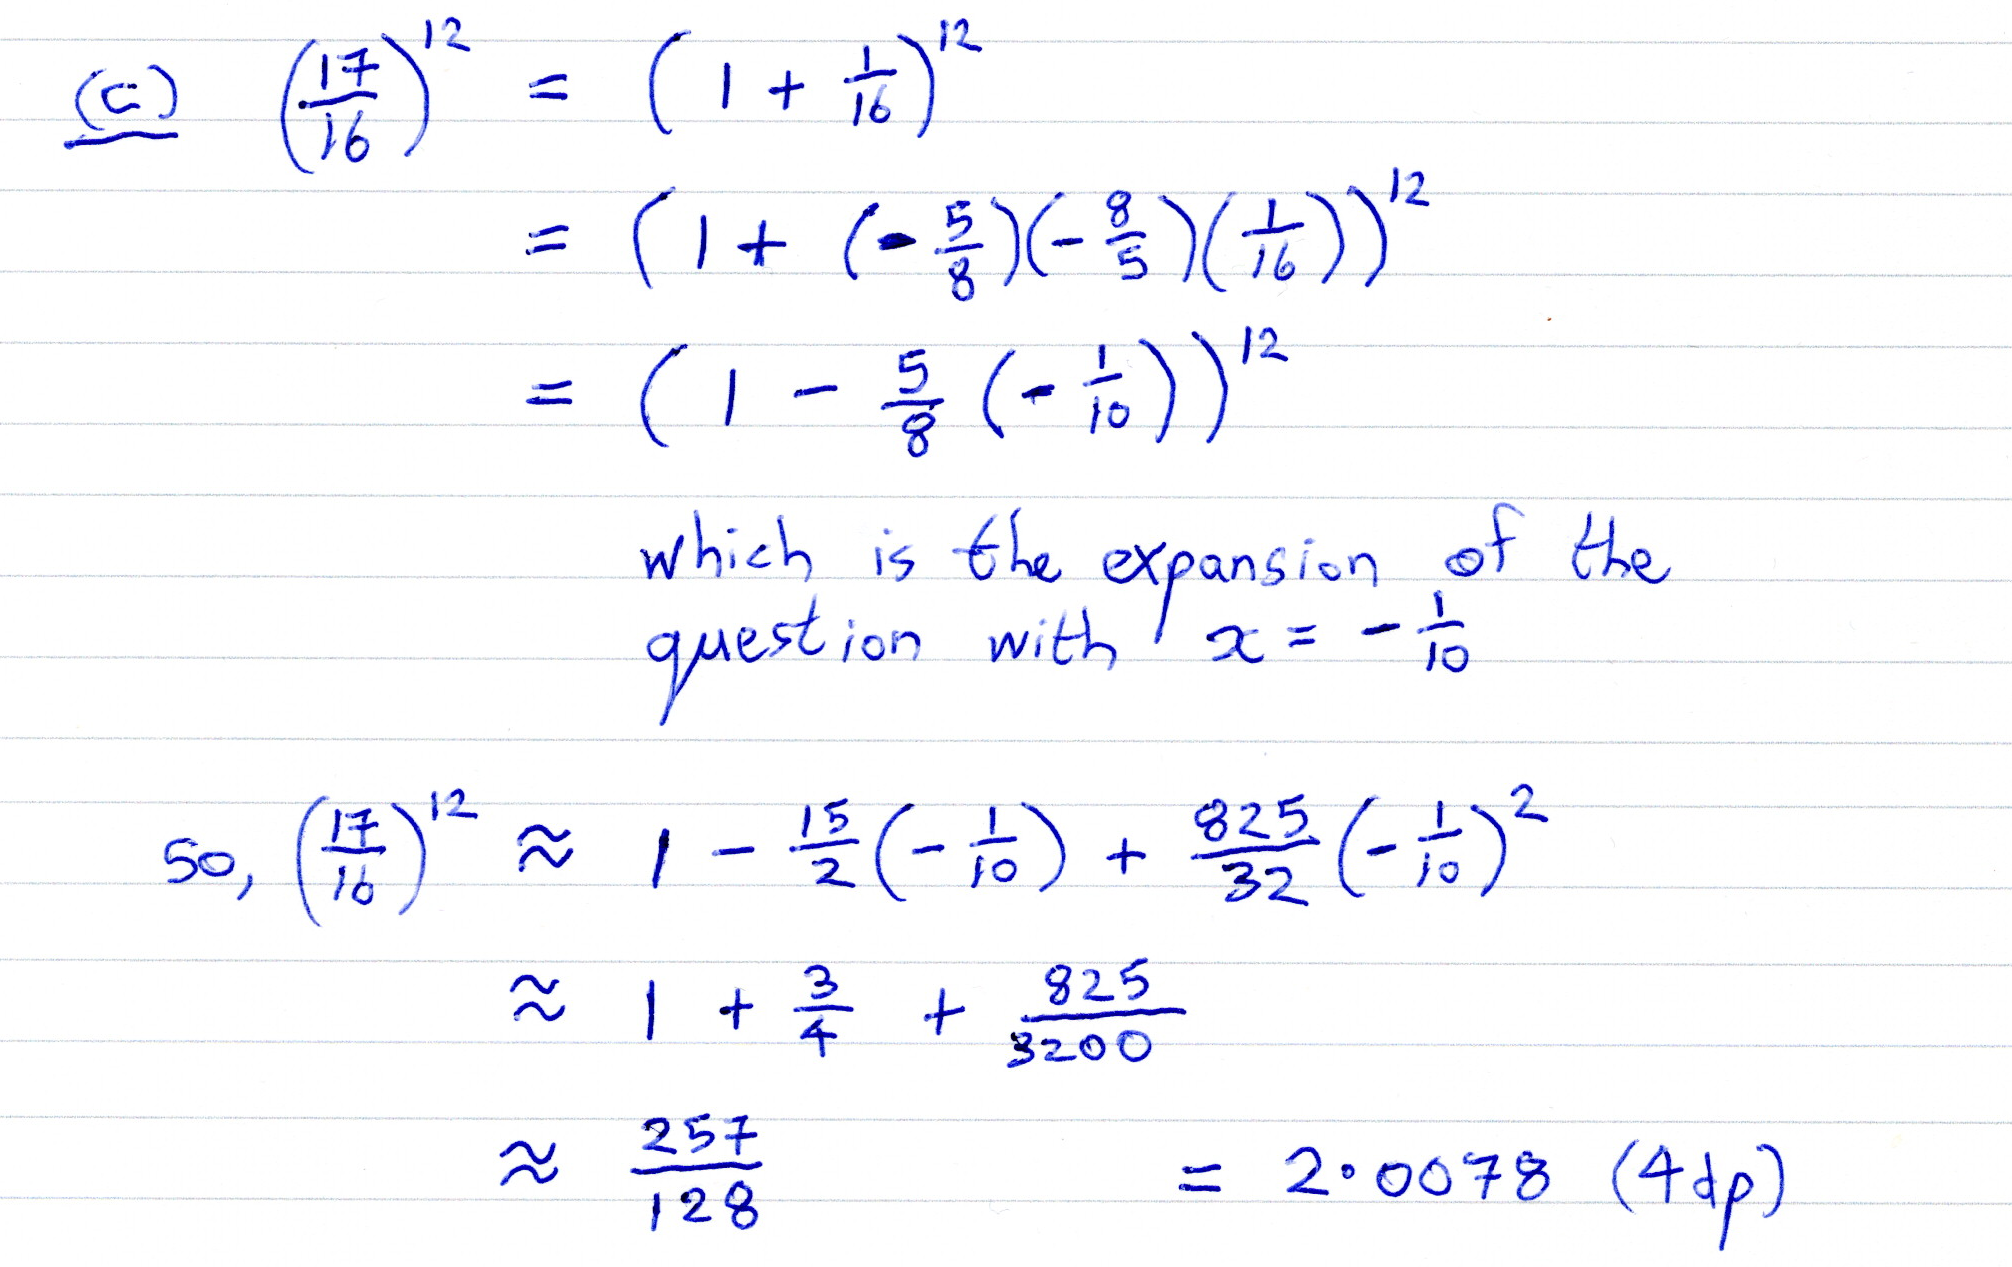 (c) (17/16)^12 = (1 + 1/16)^12
= (1 + (-5/8)(-8/5)(1/16))^12
= (1 - 5/8(-1/10))^12
which is the expansion of the
question with x = -1/10
So, (17/16)^12 ≈ 1 - 15/2(-1/10) + 825/32(-1/10)^2
≈ 1 + 3/4 + 825/3200
≈ 257/128 = 2.0078 (4dp)